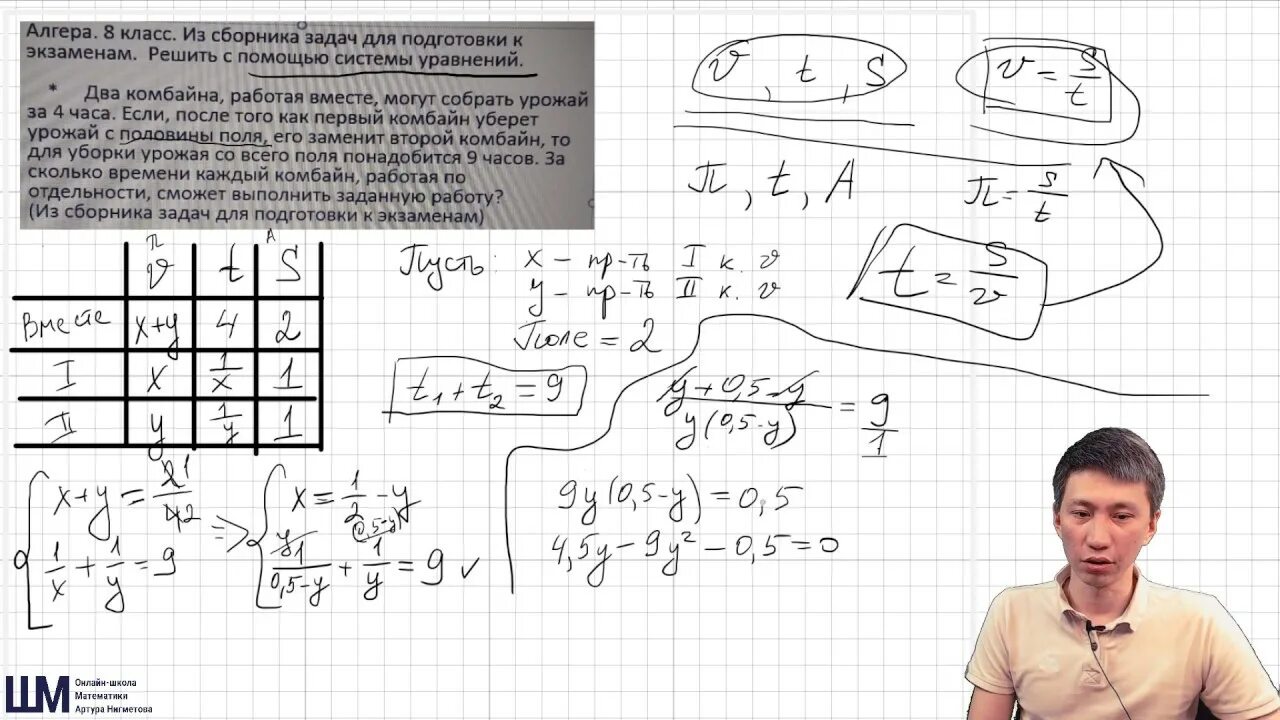 Алгера. 8 класс. Из сборника задач для подготовки к
экзаменам. Решить с помощью системы уравнений.
* Два комбайна, работая вместе, могут собрать урожай
за 4 часа. Если, после того как первый комбайн уберет
урожай с половины поля, его заменит второй комбайн, то
для уборки урожая со всего поля понадобится 9 часов. За
сколько времени каждый комбайн, работая по
отдельности, сможет выполнить заданную работу?
(Из сборника задач для подготовки к экзаменам)
v, t, S
v = s/t
П, t, A
П = s/t
t = s/v
П A
v t S
Вместе x+y 4 2
I x 1/x 1
II y 1/y 1
Пусть: x – пр-ть I к. v
y – пр-ть II к. v
Поле = 2
t₁ + t₂ = 9
x+y = 2/4 1 2
1/x + 1/y = 9
=>
x = 1/2 - y
y (0,5-y)
1/(0,5-y) + 1/y = 9 ✓
(y + 0,5 - y)/(y(0,5-y)) = 9/1
9y(0,5-y) = 0,5
4,5y - 9y² - 0,5 = 0
ШМ
Онлайн-школа
Математики
Артура Нигметова